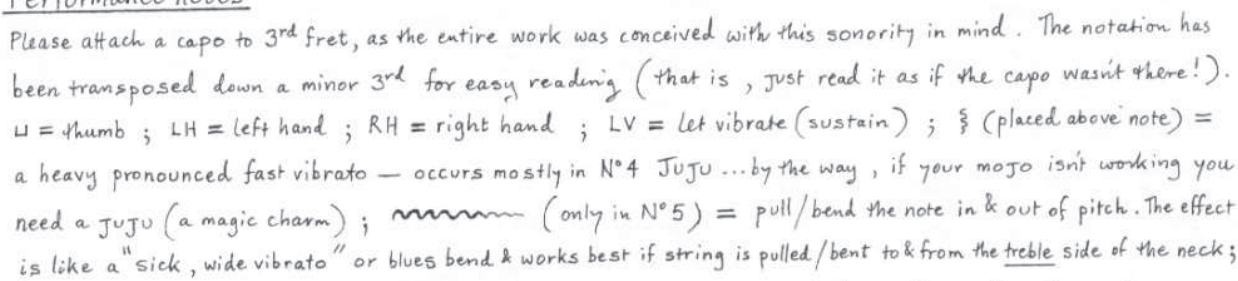 Performance Notes
Please attach a capo to 3rd fret, as the entire work was conceived with this sonority in mind. The notation has
been transposed down a minor 3rd for easy reading (that is, just read it as if the capo wasn't there!).
⊔ = thumb ; LH = left hand ; RH = right hand ; LV = let vibrate (sustain) ; ⸾ (placed above note) =
a heavy pronounced fast vibrato — occurs mostly in N° 4 JUJU ... by the way, if your mojo isn't working you
need a JUJU (a magic charm) ; 〰〰〰 (only in N° 5) = pull/bend the note in & out of pitch. The effect
is like a "sick, wide vibrato" or blues bend & works best if string is pulled/bent to & from the treble side of the neck;